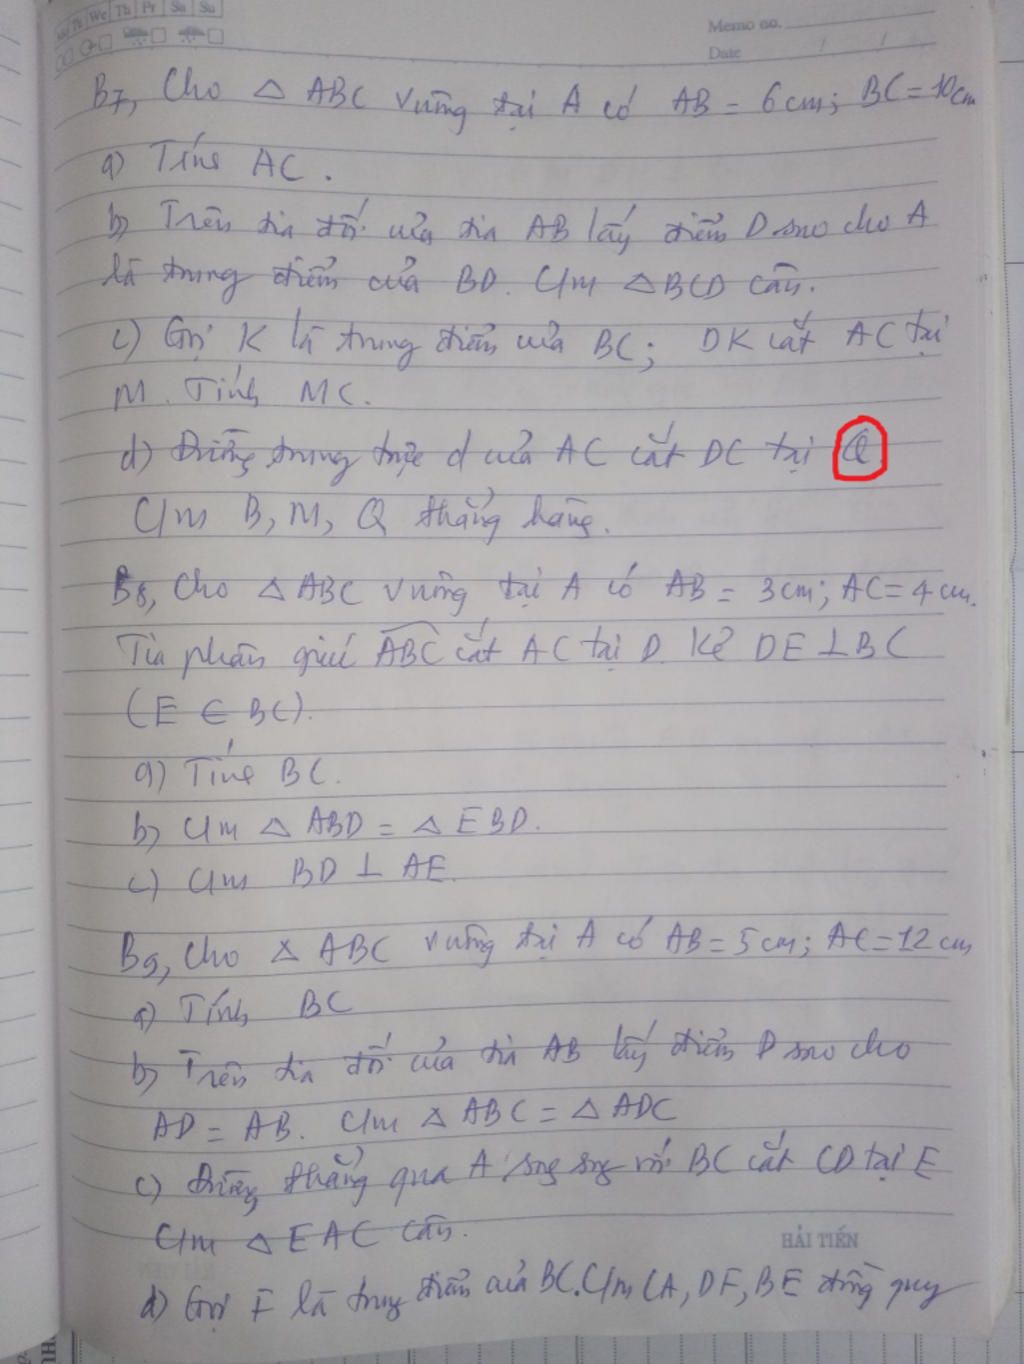 We Th Fr Sa Su
Memo no.
Date / /
B7, Cho △ ABC vuông tại A có AB = 6 cm; BC = 10 cm
a) Tính AC.
b) Trên tia đối của tia AB lấy điểm D sao cho A
là trung điểm của BD. C/m △BCD cân.
c) Gọi K là trung điểm của BC; DK cắt AC tại
M. Tính MC.
d) Đường trung trực d của AC cắt DC tại Q
C/m B, M, Q thẳng hàng.
B8, Cho △ ABC vuông tại A có AB = 3 cm; AC = 4 cm.
Tia phân giác ABC cắt AC tại D. Kẻ DE ⊥ BC
(E ∈ BC).
a) Tính BC.
b) C/m △ ABD = △ EBD.
c) C/m BD ⊥ AE.
B9, Cho △ ABC vuông tại A có AB = 5 cm; AC = 12 cm
a) Tính BC
b) Trên tia đối của tia AB lấy điểm D sao cho
AD = AB. C/m △ ABC = △ ADC
c) Đường thẳng qua A sng sng với BC cắt CD tại E
C/m △ EAC cân.
HẢI TIẾN
d) Gọi F là trung điểm của BC. C/m CA, DF, BE đồng quy